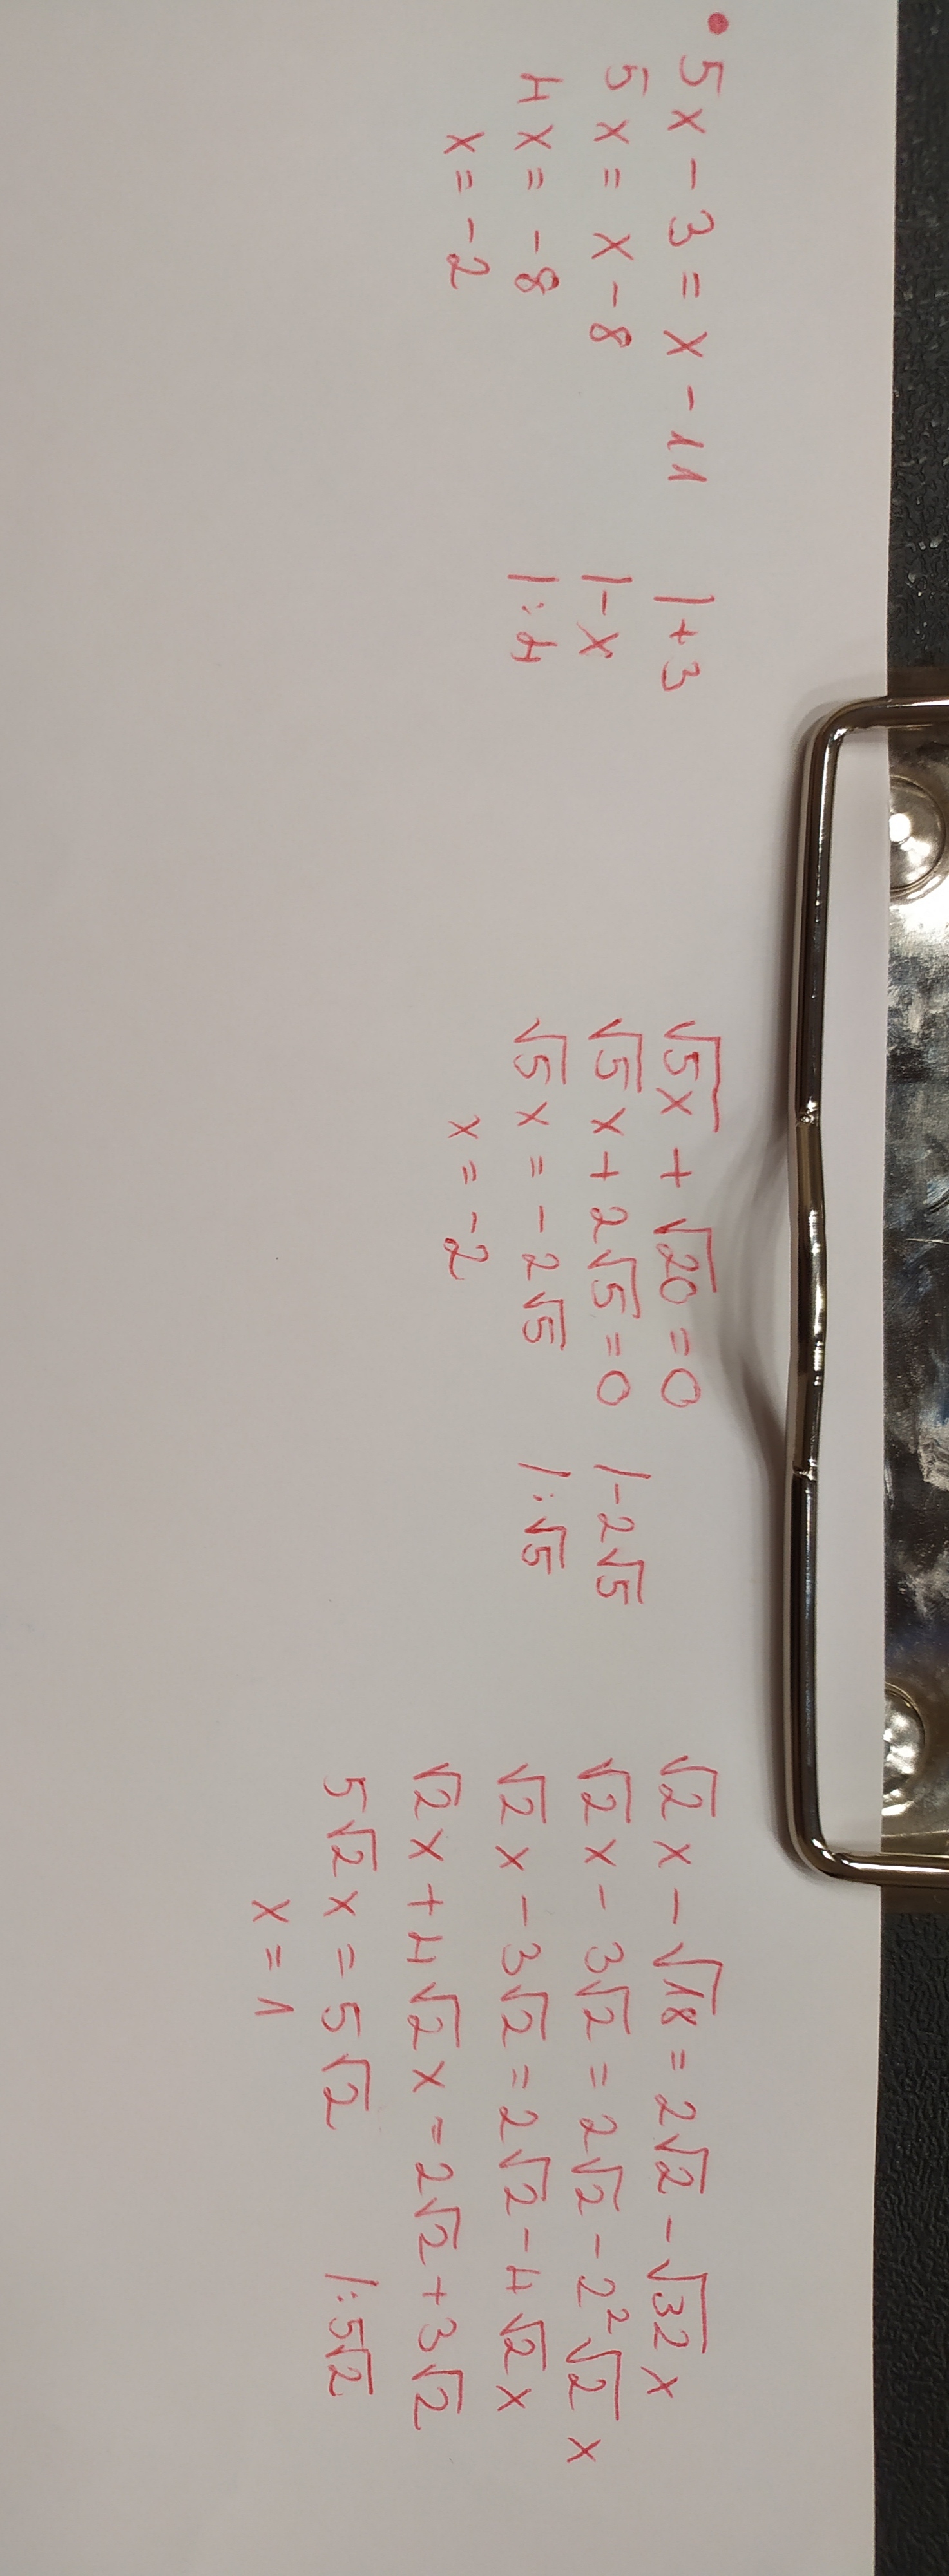 • 5x - 3 = x - 11 | + 3
5x = x - 8 | - x
4x = -8 | : 4
x = -2
√5x + √20 = 0
√5 x + 2√5 = 0 | - 2√5
√5 x = - 2√5 | : √5
x = -2
√2 x - √18 = 2√2 - √32 x
√2 x - 3√2 = 2√2 - 2²√2 x
√2 x - 3√2 = 2√2 - 4√2 x
√2 x + 4√2 x = 2√2 + 3√2
5√2 x = 5√2 | : 5√2
x = 1